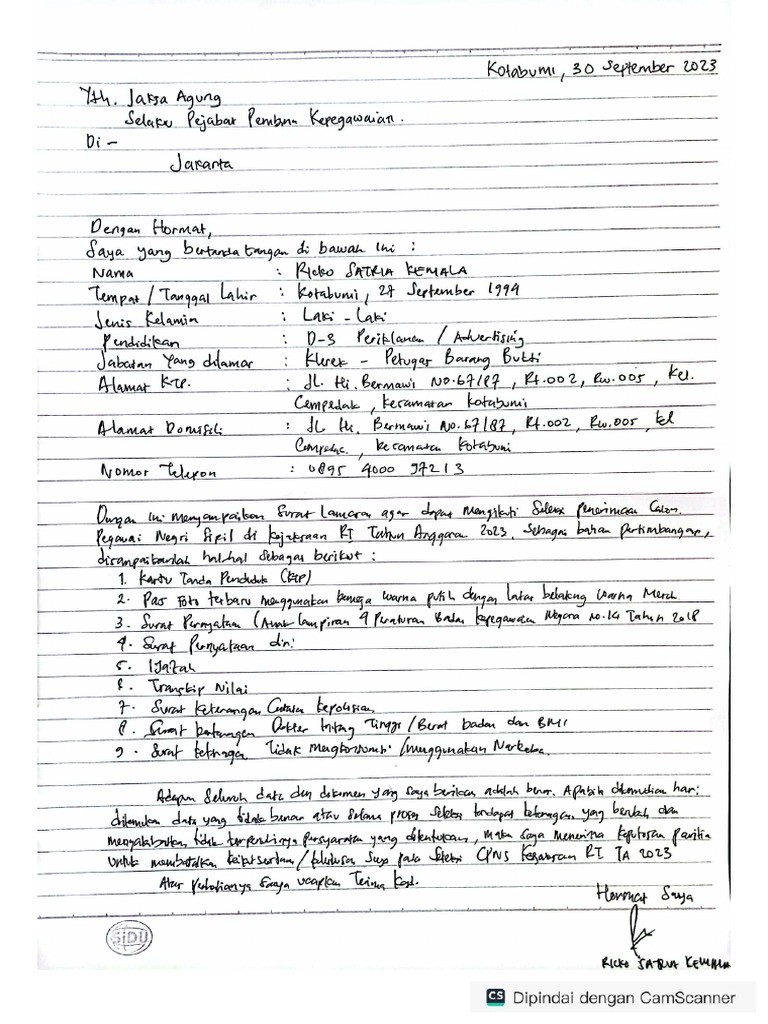 Kotabumi, 30 September 2023
Yth. Jaksa Agung
Selaku Pejabat Pembina Kepegawaian.
Di -
Jakarta
Dengan Hormat,
Saya yang bertanda tangan di bawah ini :
Nama : RICKO SATRIA KEMALA
Tempat / Tanggal Lahir : Kotabumi, 27 September 1994
Jenis Kelamin : Laki - Laki
Pendidikan : D-3 Periklanan / Advertising
Jabatan Yang dilamar : Klerek - Petugas Barang Bukti
Alamat KTP. : JL. Hi. Bermawi No.67/87, Rt.002, Rw.005, Kel.
Cempedak, kecamatan kotabumi
Alamat Domisili : JL Hi. Bermawi No.67/87, Rt.002, Rw.005, kel
Cempedac, kecamatan kotabumi
Nomor Telepon : 0895 4000 97213
Dengan ini menyampaikan surat lamaran agar dapat mengikuti Seleksi penerimaan Calon
Pegawai Negri Sipil di kejaksaan RI Tahun Anggaran 2023. Sebagai bahan pertimbangan,
disampaikanlah hal-hal sebagai berikut :
1. Kartu Tanda Penduduk (KTP)
2. Pas Foto terbaru menggunakan kemeja warna putih dengan latar belakang warna Merah
3. Surat Pernyataan (Anak Lampiran 4 Peraturan Badan kepegawaian Negara No.14 Tahun 2018
4. Surat Pernyataan diri
5. Ijazah
6. Transkip Nilai
7. Surat keterangan Catatan kepolisian
8. Surat keterangan Dokter tntang Tinggi/Berat badan dan BMI
9. Surat keterangan Tidak mengkonsumsi /menggunakan Narkoba.
Adapun Seluruh data dan dokumen yang saya berikan adalah benar. Apabila dikemudian hari
ditemukan data yang tidak benar atau selama proses seleksi terdapat keterangan yang berubah dan
mengakibatkan tidak terpenuhinya persyaratan yang ditentukan, maka saya menerima keputusan panitia
untuk membatalkan keikutsertaan / kelulusan saya pada seleksi CPNS Kejaksaan RI TA 2023
Atas perhatiannya saya ucapkan Terima kasih.
Hormat Saya
RICKO SATRIA KEMALA
SiDU
CS Dipindai dengan CamScanner